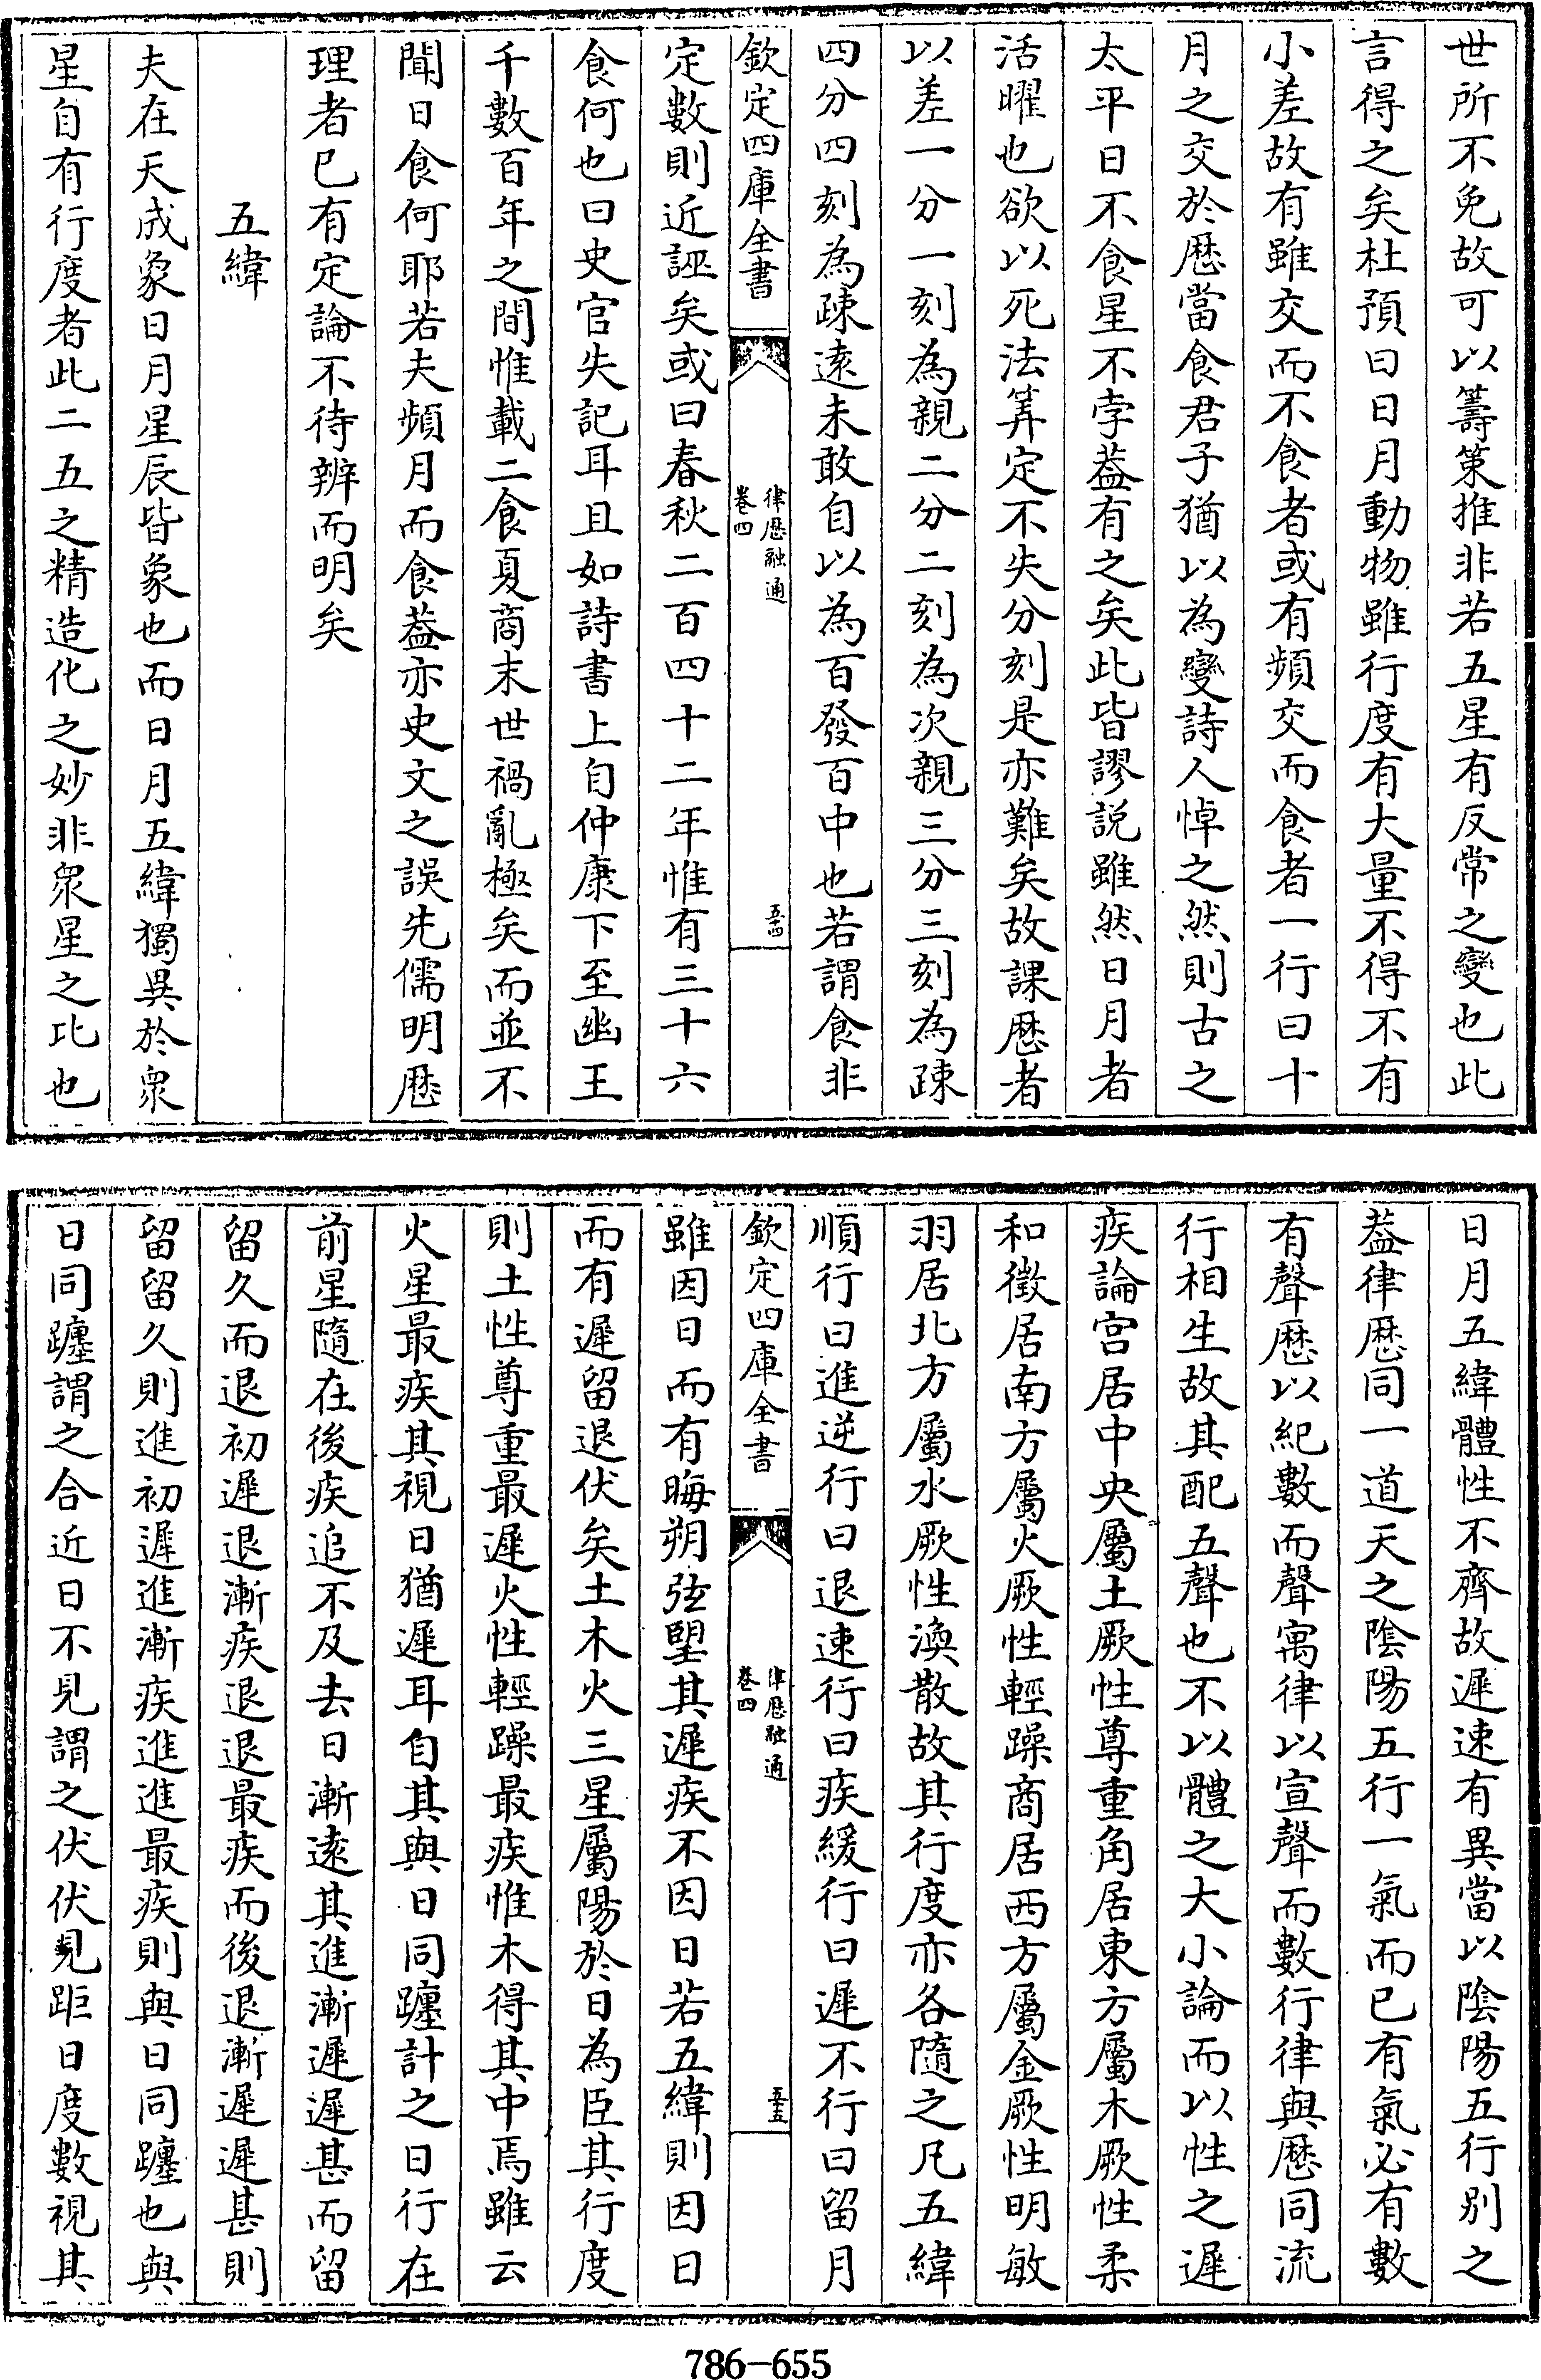 世所不免故可以籌策推非若五星有反常之變也此
言得之矣杜預曰日月動物雖行度有大量不得不有
小差故有雖交而不食者或有頻交而食者一行曰十
月之交於厯當食君子猶以為變詩人悼之然則古之
太平日不食星不孛葢有之矣此皆謬説雖然日月者
活曜也欲以死法筭定不失分刻是亦難矣故課厯者
以差一分一刻為親二分二刻為次親三分三刻為疎
四分四刻為疎逺未敢自以為百發百中也若謂食非
欽定四庫全書
律厯融通
卷四
五十四
定數則近誣矣或曰春秋二百四十二年惟有三十六
食何也曰史官失記耳且如詩書上自仲康下至幽王
千數百年之間惟載二食夏商末世禍亂極矣而並不
聞日食何耶若夫頻月而食葢亦史文之誤先儒明厯
理者已有定論不待辨而明矣
五緯
夫在天成象日月星辰皆象也而日月五緯獨異於衆
星自有行度者此二五之精造化之妙非衆星之比也
日月五緯體性不齊故遲速有異當以陰陽五行别之
葢律厯同一道天之陰陽五行一氣而已有氣必有數
有聲厯以紀數而聲寓律以宣聲而數行律與厯同流
行相生故其配五聲也不以體之大小論而以性之遲
疾論宫居中央屬土厥性尊重角居東方屬木厥性柔
和徵居南方屬火厥性輕躁商居西方屬金厥性明敏
羽居北方屬水厥性渙散故其行度亦各隨之凡五緯
順行曰進逆行曰退速行曰疾緩行曰遲不行曰留月
欽定四庫全書
律厯融通
卷四
五十五
雖因日而有晦朔弦望其遲疾不因日若五緯則因日
而有遲留退伏矣土木火三星屬陽於日為臣其行度
則土性尊重最遲火性輕躁最疾惟木得其中焉雖云
火星最疾其視日猶遲耳自其與日同躔計之日行在
前星隨在後疾追不及去日漸逺其進漸遲遲甚而留
留久而退初遲退漸疾退退最疾而後退漸遲遲甚則
留留久則進初遲進漸疾進進最疾則與日同躔也與
日同躔謂之合近日不見謂之伏伏見距日度數視其
786-655